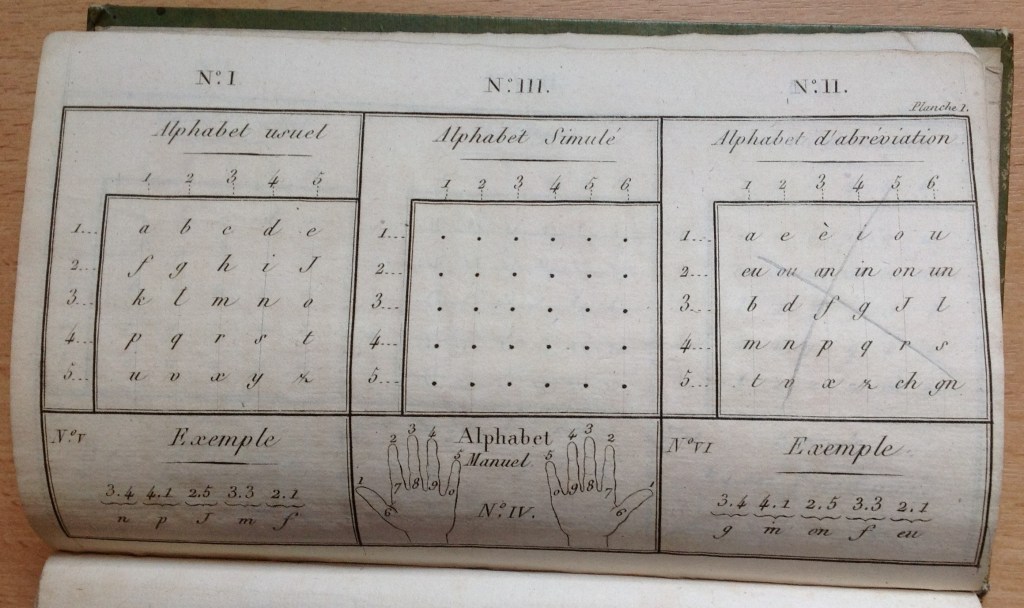 N.º I
N.º III.
N.º II.
Planche 1.
Alphabet usuel
1 2 3 4 5
1... a b c d e
2... f g h i J
3... k l m n o
4... p q r s t
5... u v x y z
Alphabet Simulé
1 2 3 4 5 6
1...
2...
3...
4...
5...
Alphabet d'abréviation
1 2 3 4 5 6
1... a e è i o u
2... eu ou an in on un
3... b d f g J l
4... m n p q r s
5... t v x z ch gn
N.º V
Exemple
3.4 4.1 2.5 3.3 2.1
n p J m f
Alphabet
Manuel
N.º IV.
1 2 3 4 5
6 7 8 9 0
5 4 3 2 1
0 9 8 7 6
N.º VI
Exemple
3.4 4.1 2.5 3.3 2.1
g m on f eu